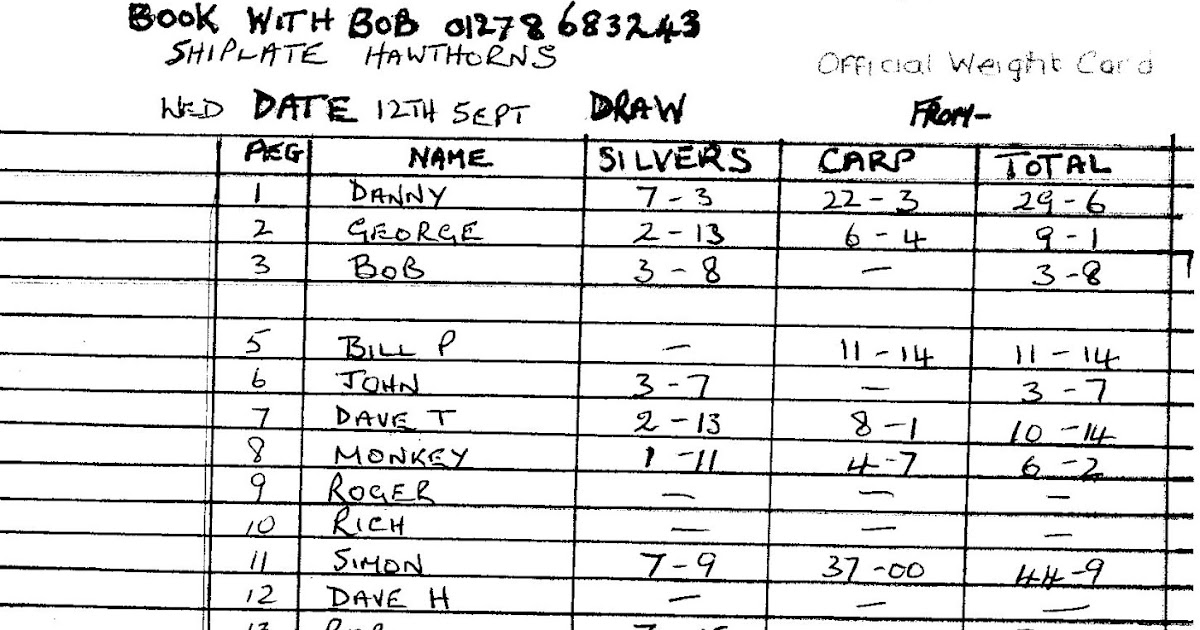 BOOK WITH BOB 01278 683243
SHIPLATE HAWTHORNS
Official Weight Card
WED DATE 12TH SEPT DRAW FROM-
PEG NAME SILVERS CARP TOTAL
1 DANNY 7-3 22-3 29-6
2 GEORGE 2-13 6-4 9-1
3 BOB 3-8 — 3-8
5 BILL P — 11-14 11-14
6 JOHN 3-7 — 3-7
7 DAVE T 2-13 8-1 10-14
8 MONKEY 1-11 4-7 6-2
9 ROGER — — —
10 RICH — — —
11 SIMON 7-9 37-00 44-9
12 DAVE H — — —
13